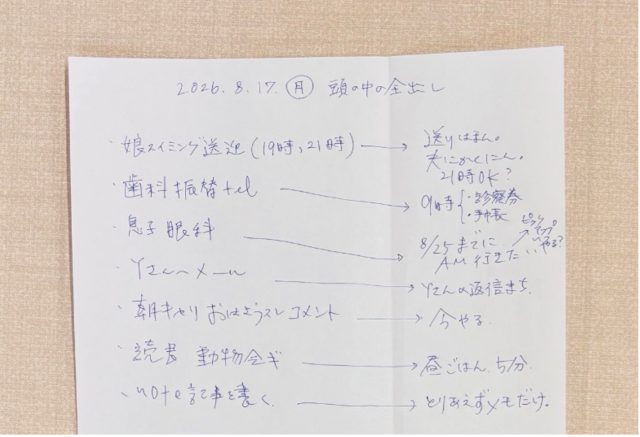 2026.8.17. 月 頭の中の全出し
・娘スイミング送迎(19時,21時) → 送りはまん。
夫にかくにん。
21時OK?
・歯科振替tel → 9時 ・診察券
・手帳
・息子眼科 → 8/25までに
AM行きたい
いつやる?
・Yさんへメール → Yさんの返信まち。
・朝キャリ おはようスレ コメント → 今やる。
・読書 動物会ギ → 昼ごはん 5分。
・note記事を書く → とりあえずメモだけ。